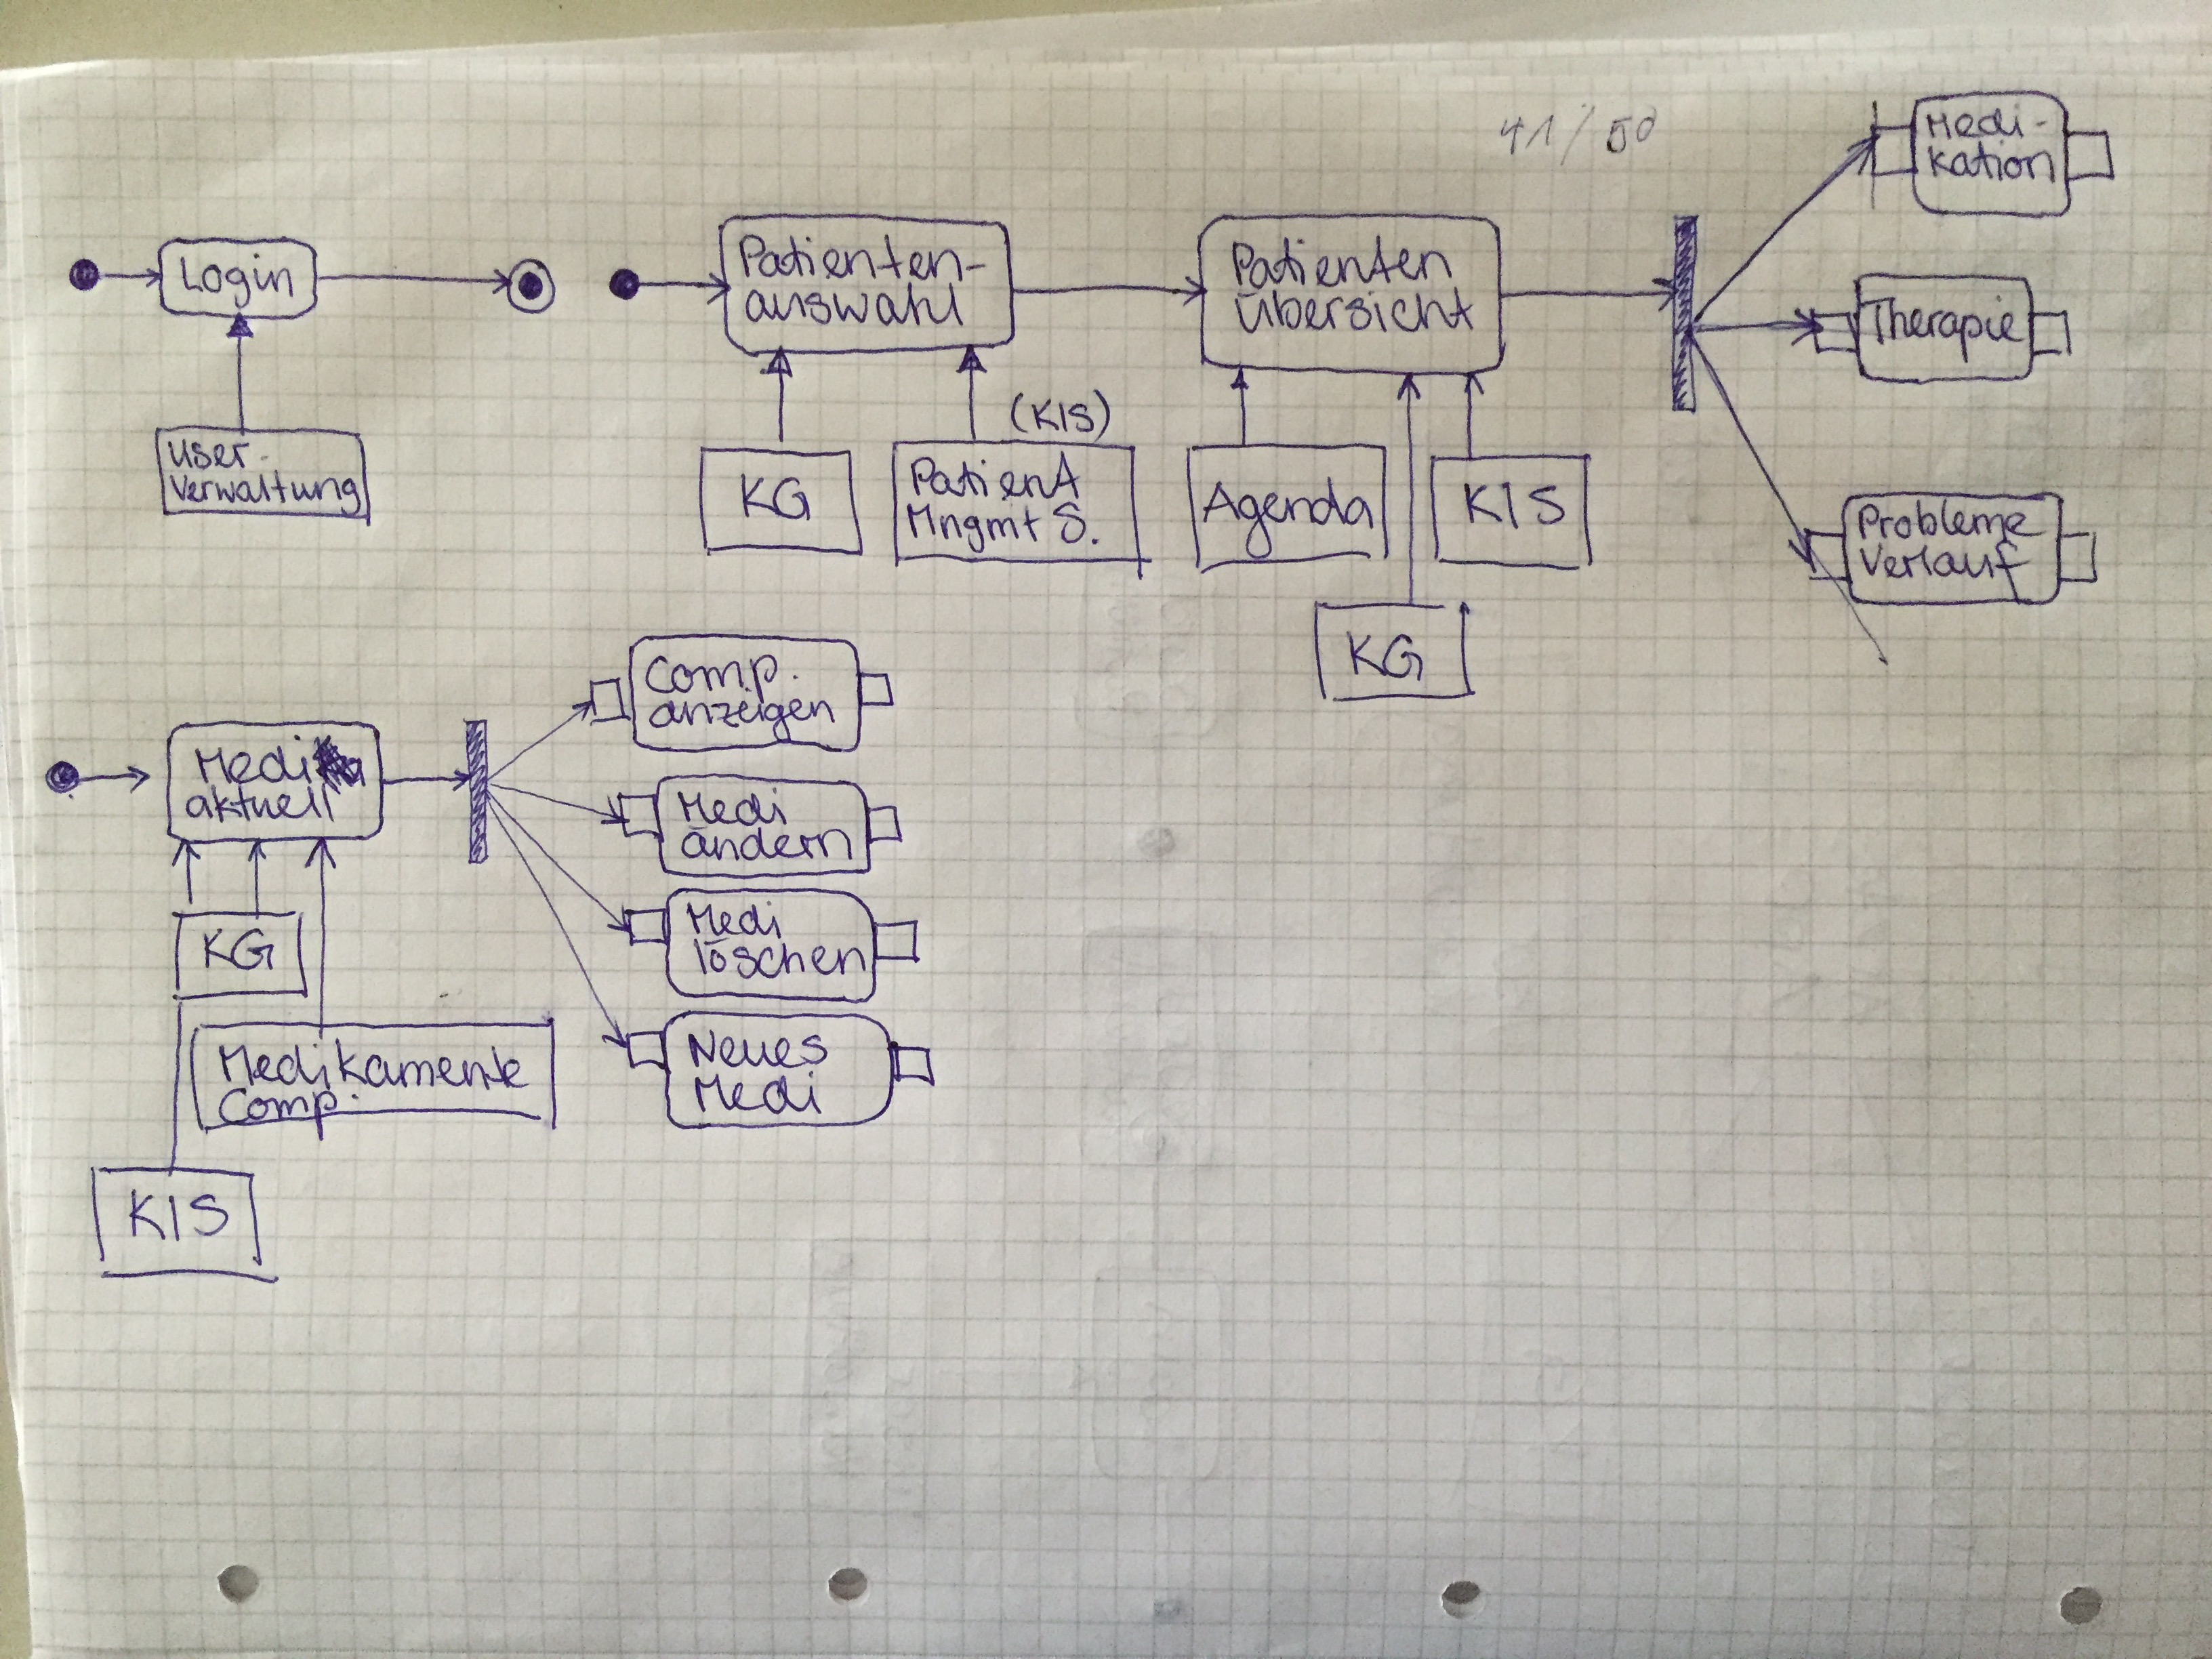 41/50
Login
User-
Verwaltung
Patienten-
auswahl
KG
(KIS)
Patient
Mngmt S.
Patienten
übersicht
Agenda
KIS
KG
Medi-
kation
Therapie
Probleme
Verlauf
Medi
aktuell
KG
Medikamente
Comp.
KIS
Comp.
anzeigen
Medi
ändern
Medi
löschen
Neues
Medi